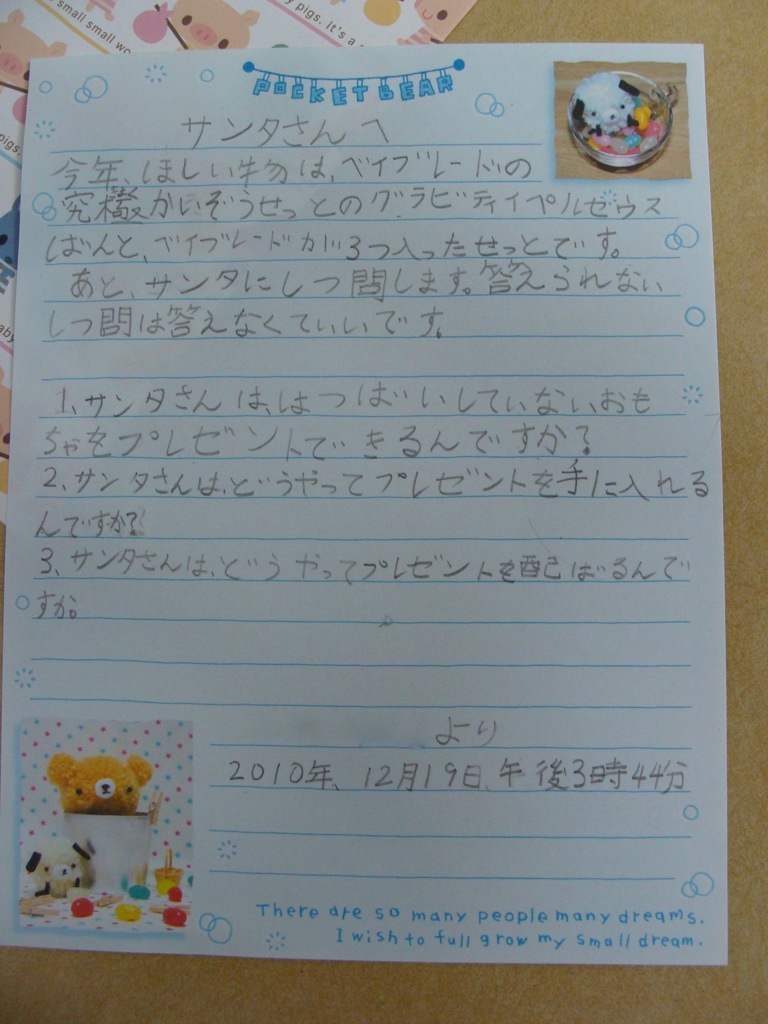 small small wo
y pigs. It's a s
pigs.
POCKET BEAR
サンタさんへ
今年、ほしい物は、ベイブレードの
究極かいぞうせっとのグラビティペルセウス
ばんと、ベイブレードが3つ入ったせっとです。
あと、サンタにしつ問します。答えられない
しつ問は答えなくていいです。
1、サンタさんは、はつばいしていないおも
ちゃをプレゼントできるんですか?
2、サンタさんは、どうやってプレゼントを手に入れる
んですか?
3、サンタさんは、どうやってプレゼントを配ばるんで
すか。
より
2010年、12月19日、午後3時44分
There are so many people many dreams.
I wish to full grow my small dream.